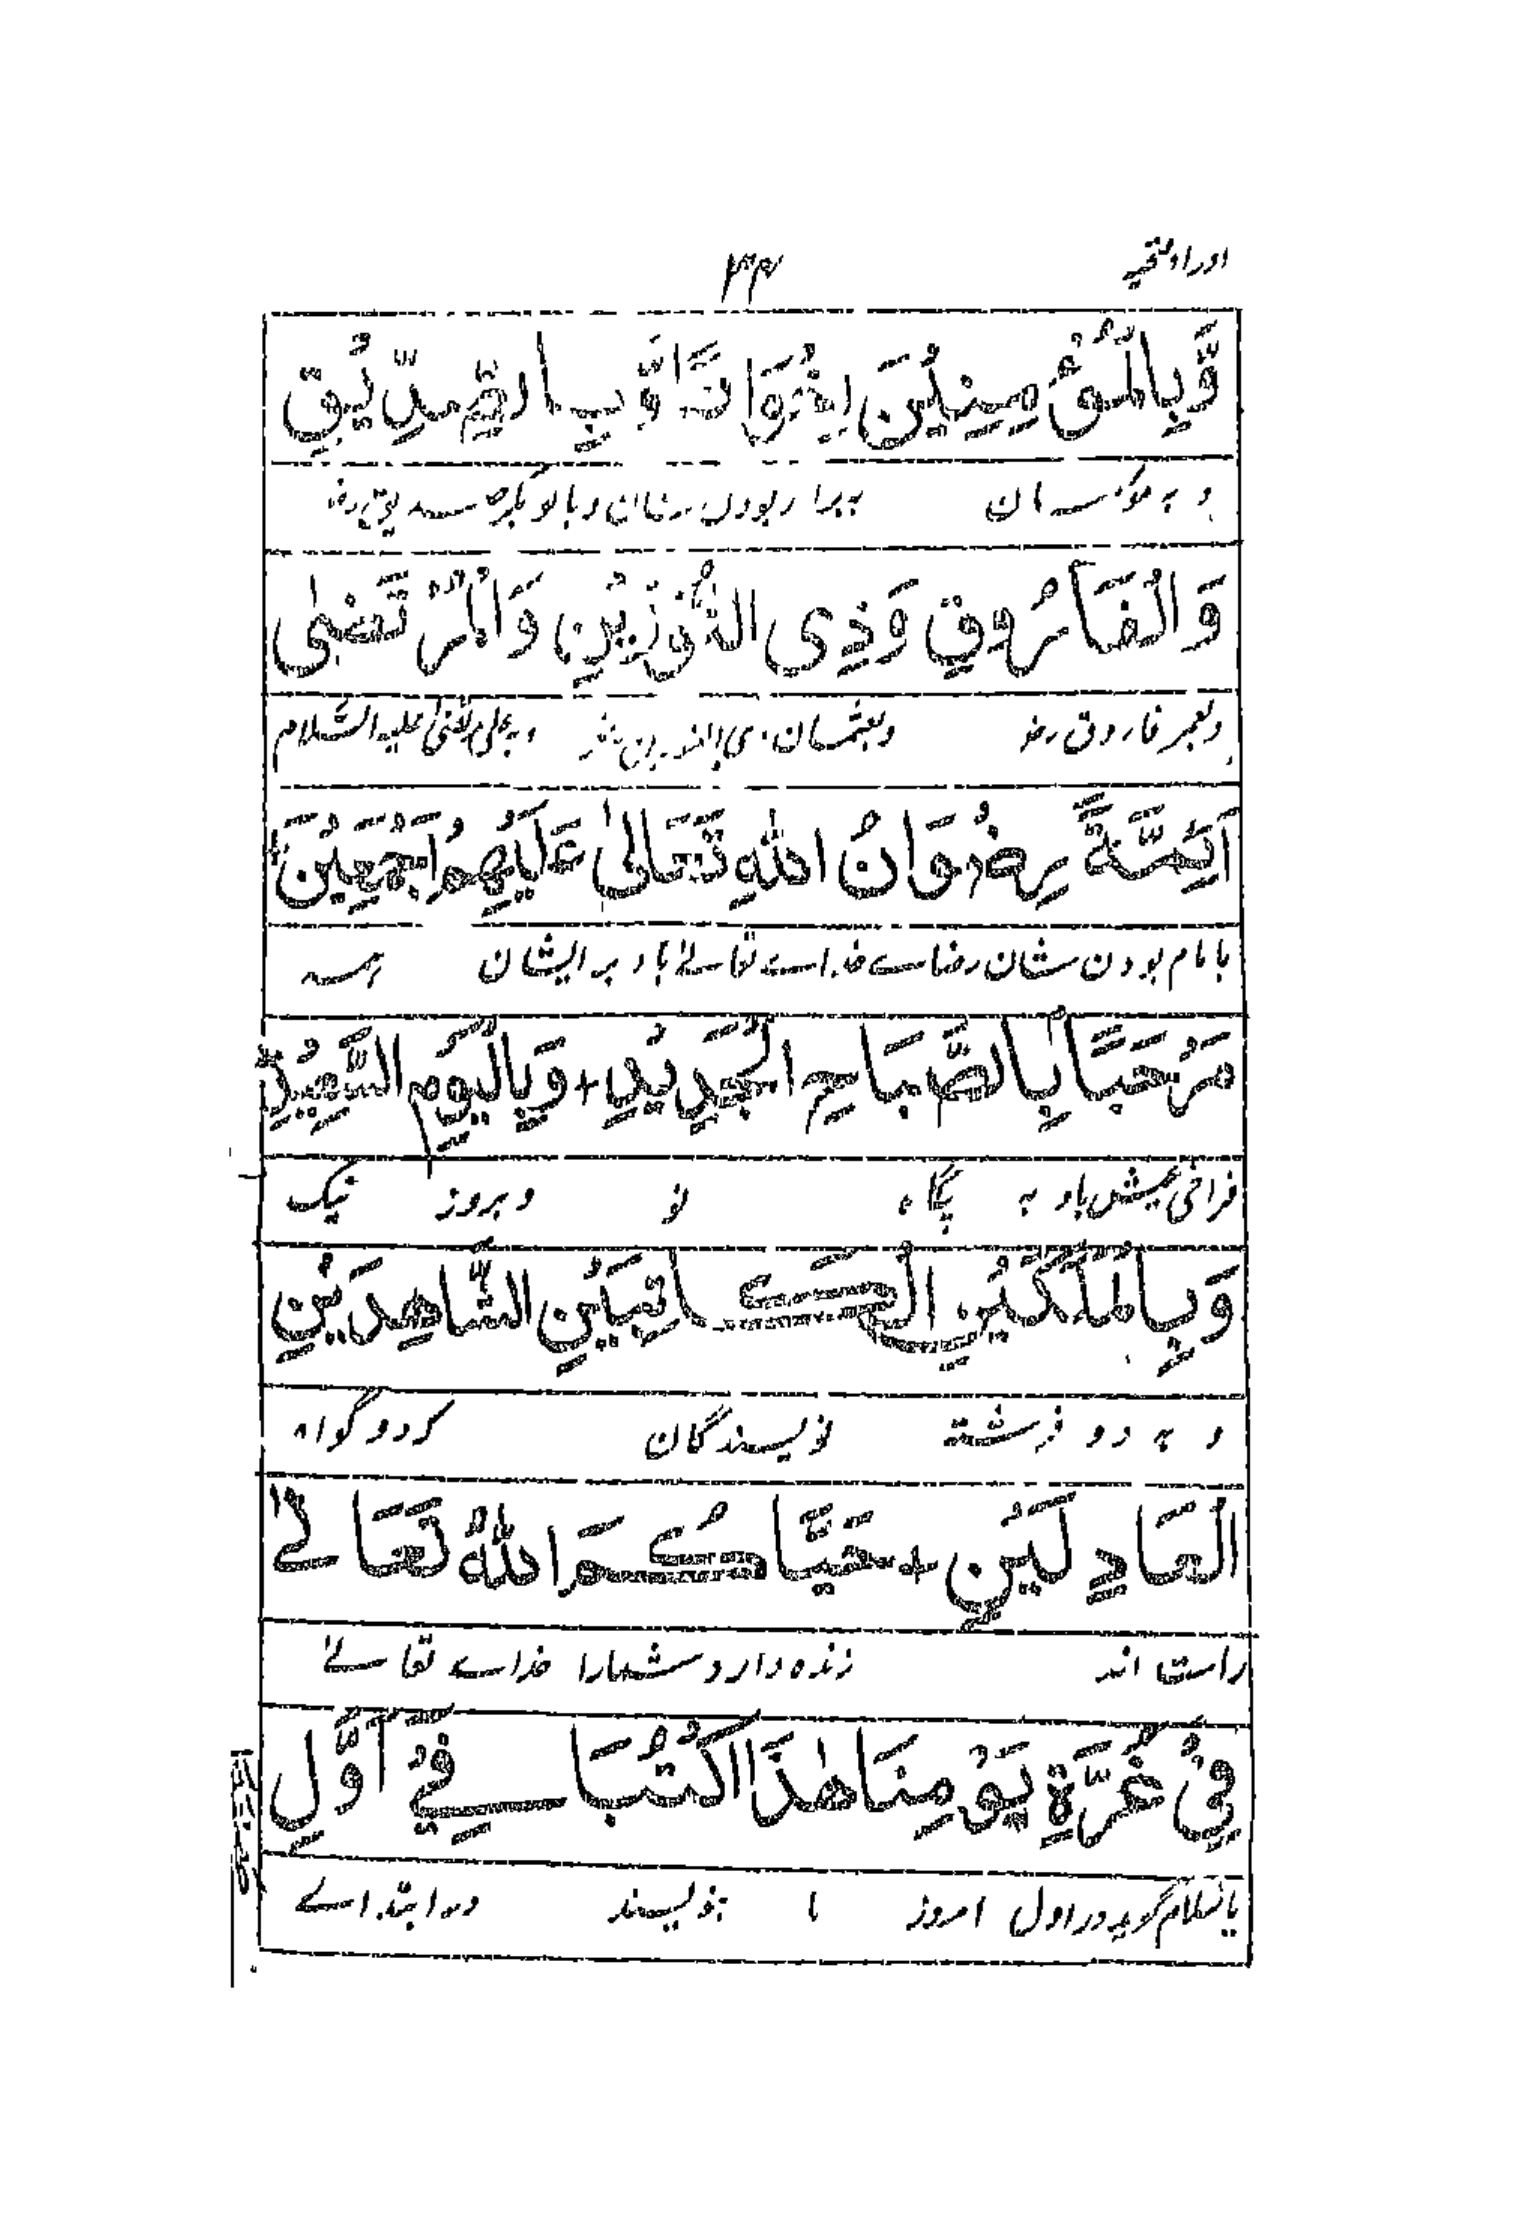 اوراد فتحیه
۳۴
وَّبِالْمُؤْمِنِیْنَ اِخْوَانًا وَّبِالصِّدِّیْقِ
و به مومنان به برادر بودن ایشان و بابوبکر صدیق رضہ
وَالْفَارُوْقِ وَذِی النُّوْرَیْنِ وَالْمُرْتَضٰی
وبعمر فاروق رضہ وبعثمان ذی النورین وبه علی مرتضیٰ علیه السّلام
اَئِمَّةً رِضْوَانُ اللهِ تَعَالیٰ عَلَیْهِمْ اَجْمَعِیْنَ
با مام بودن شان رضاے خداے تعالےٰ باد بر ایشان همه
مَرْحَبًا بِالصَّبَاحِ الْجَدِیْدِ + وَبِالْیَوْمِ السَّعِیْدِ
فراخی عیش باد به پگاه نو و بروز نیک
وَبِالْمَلَكَیْنِ الْكَاتِبَیْنِ الشَّاهِدَیْنِ
و به دو فرشته نویسندگان که دو گواه
الْعَادِلَیْنِ + حَیَّاكُمَا اللهُ تَعَالےٰ
راست اند زنده دارد شمارا خداے تعالےٰ
فِیْ غُرَّةِ یَوْمِنَا هٰذَا اكْتُبَا فِیْ اَوَّلِ
یا سلام گوید در اول امروز ما بنویسند در ابتداے